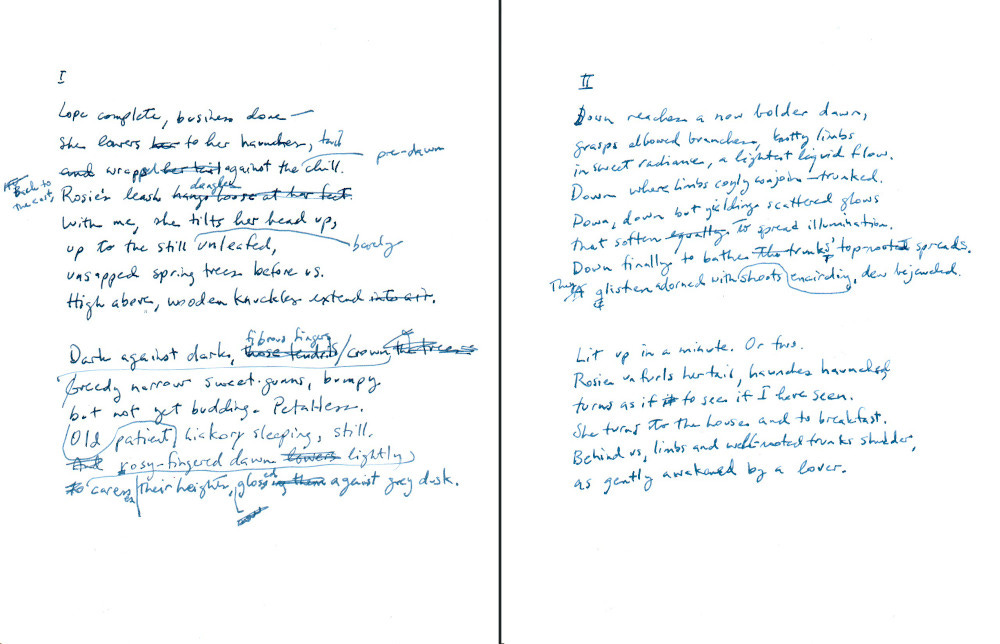 I
Lope complete, business done —
She lowers her to her haunches, tail
and wrapped her tail against the chill.
pre-dawn
Back to
the east,
Rosie's leash hangs loose at her feet.
dangles
With me, she tilts her head up,
up to the still unleafed,
barely
unsapped spring trees before us.
High above, wooden knuckles extend into air.
fibrous fingers
Dark against dark, those tendrils / crown the trees
Greedy narrow sweet-gums, bumpy
but not yet budding. Petalless.
Old patient hickory sleeping, still.
And rosy-fingered dawn lowers lightly
to caresses their heights, glossed ing them against grey dusk.
II
Down reaches a now bolder dawn,
grasps elbowed branches, knotty limbs
in sweet radiance, a lightest liquid flow.
Down where limbs coyly conjoin – trunked.
Down, down but yielding scattered glows
that soften equally to spread illumination.
Down finally to bathe the trunks' top-rooted spreads.
They glisten adorned with shoots encircling, dew bejeweled.
Lit up in a minute. Or two.
Rosie unfurls her tail, haunches haunched,
turns as if it to see if I have seen.
She turns to the house and to breakfast.
Behind us, limbs and well-rooted trunks shudder,
as gently awakened by a lover.